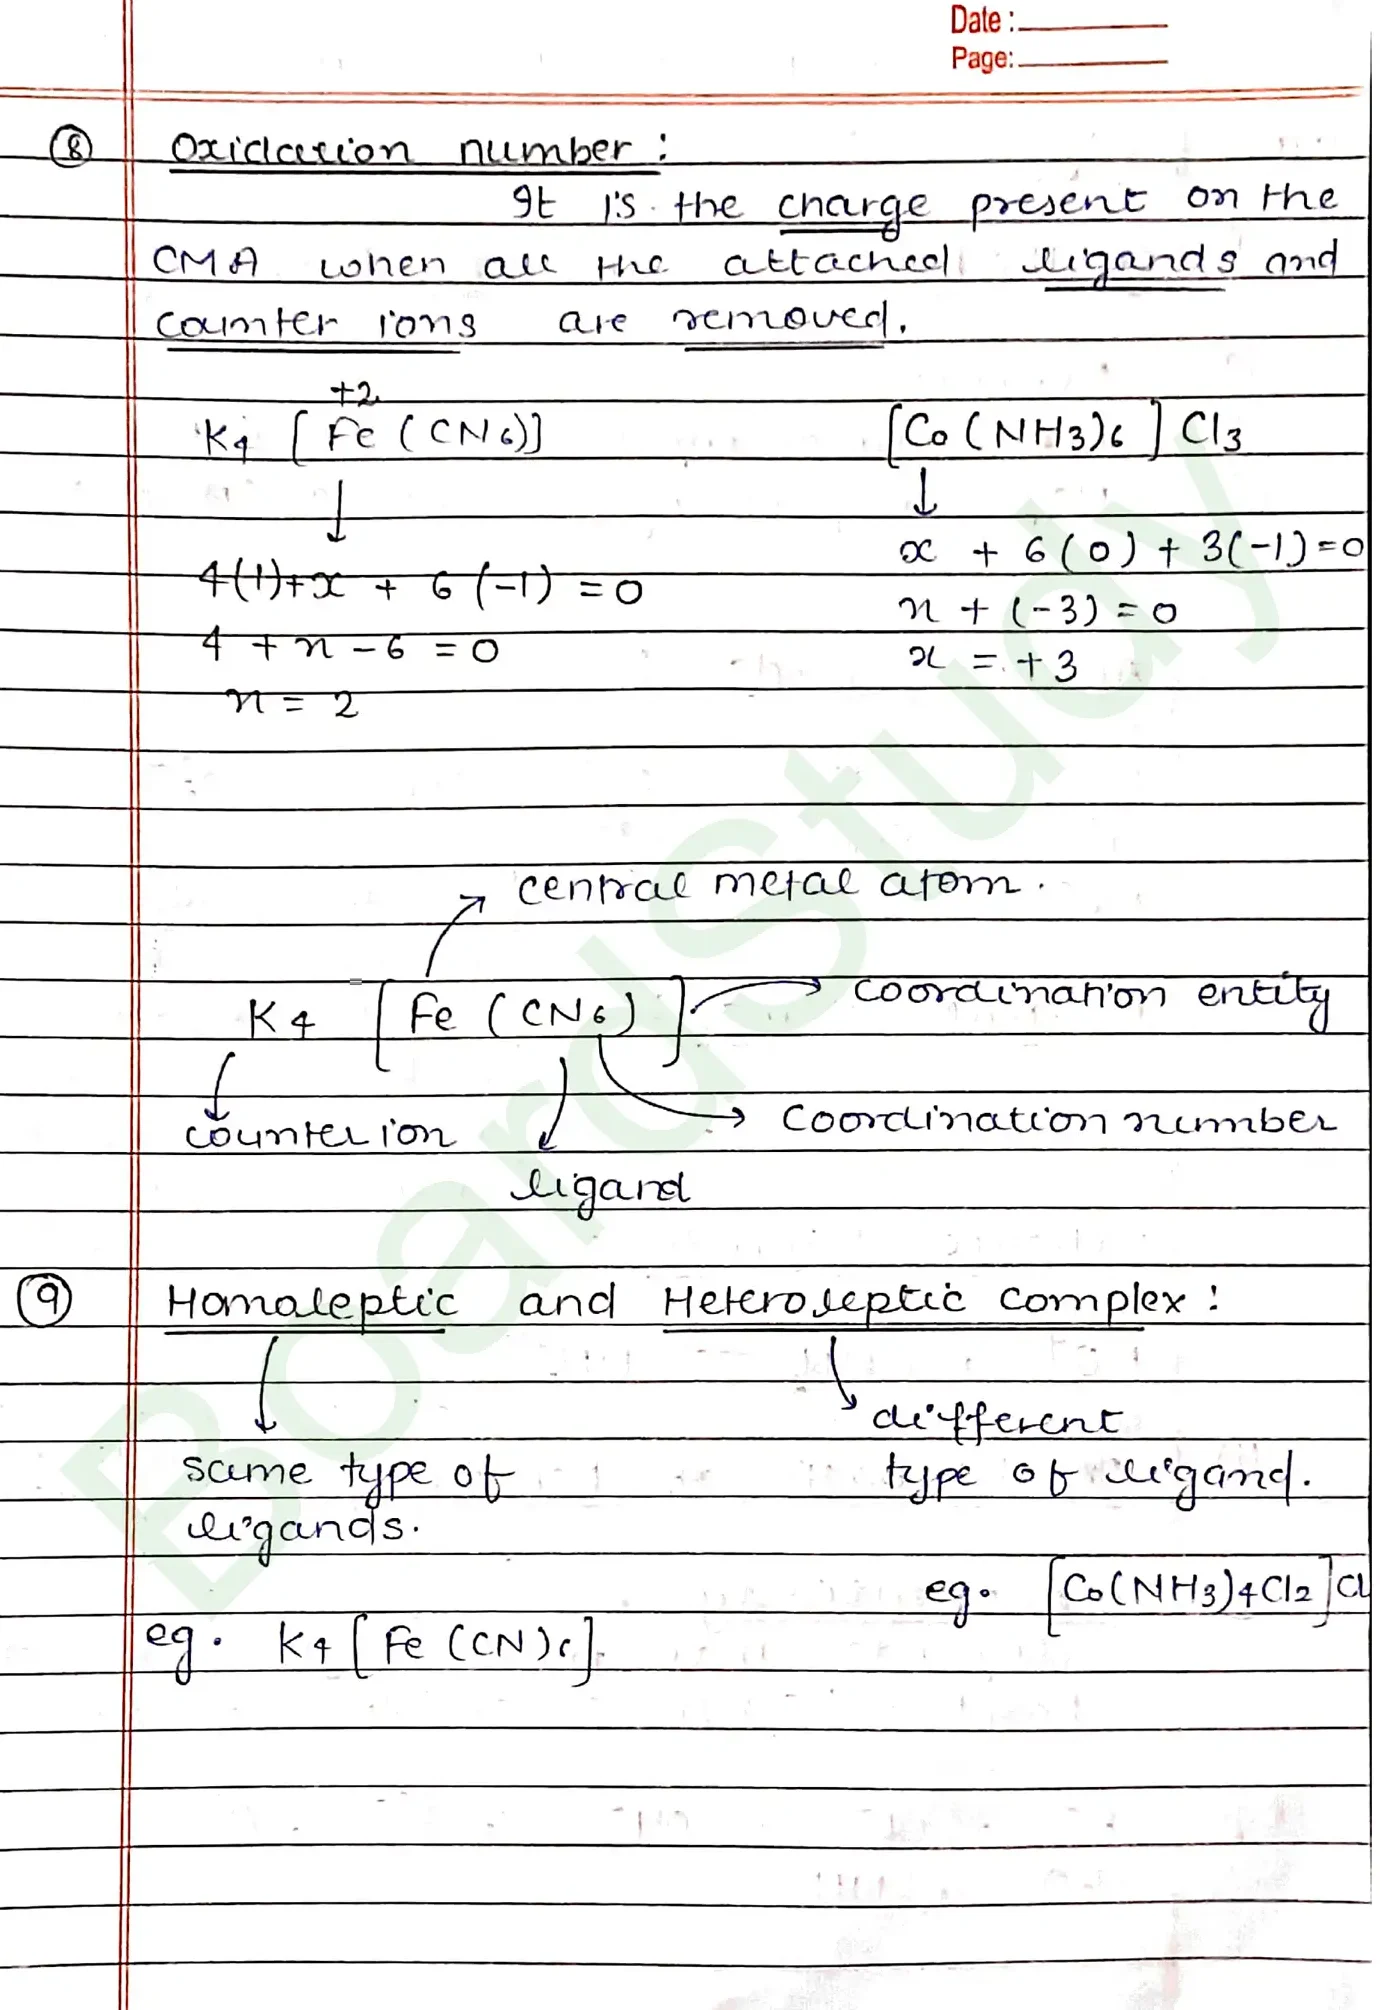 Date :
Page:
⑧ Oxidation number :
It is the charge present on the
CMA when all the attached ligands and
counter ions are removed.
+2
K4 [Fe(CN6)]
[Co(NH3)6]Cl3
4(1)+x + 6(-1) = 0
4 + x - 6 = 0
x = 2
x + 6(0) + 3(-1) = 0
x + (-3) = 0
x = +3
central metal atom.
K4 [Fe(CN6)]
coordination entity
counter ion
coordination number
ligand
⑨ Homoleptic and Heteroleptic complex :
same type of
ligands.
eg. K4[Fe(CN)6]
different
type of ligand.
eg. [Co(NH3)4Cl2]Cl
BoardStudy